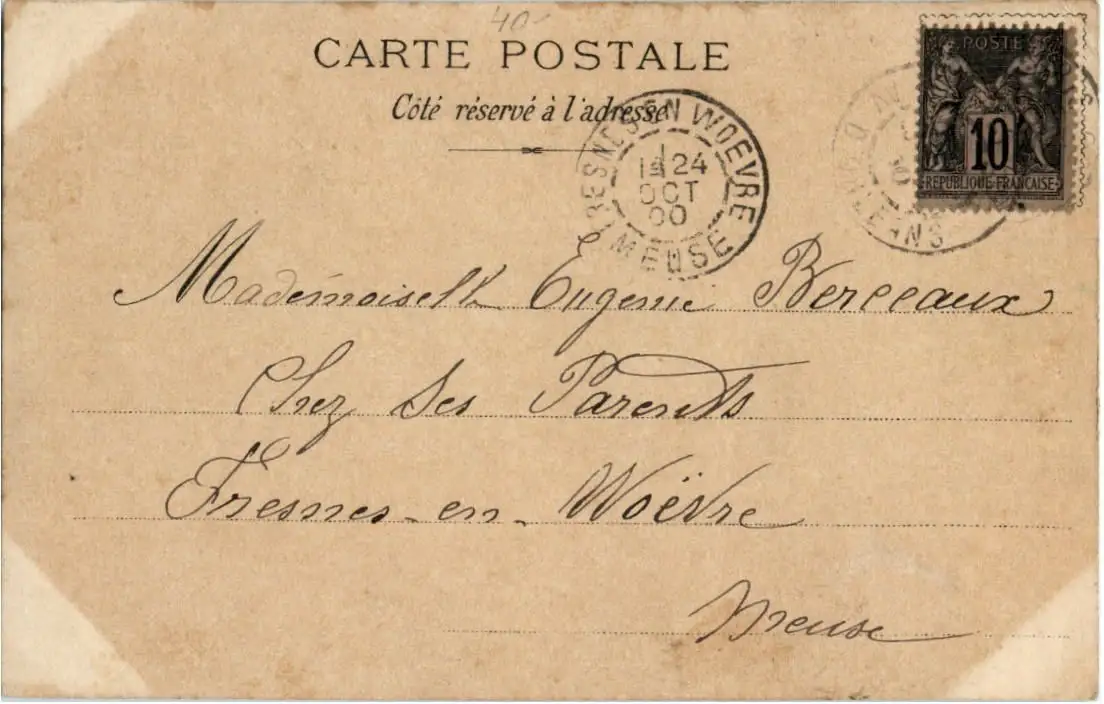 40-
CARTE POSTALE
Côté réservé à l'adresse
POSTE
10
REPUBLIQUE FRANÇAISE
FRESNES EN WOEVRE
1E 24
OCT
00
MEUSE
Mademoiselle Eugenie Berceaux
Chez Ses Parents
Fresnes-en-Woëvre
Meuse